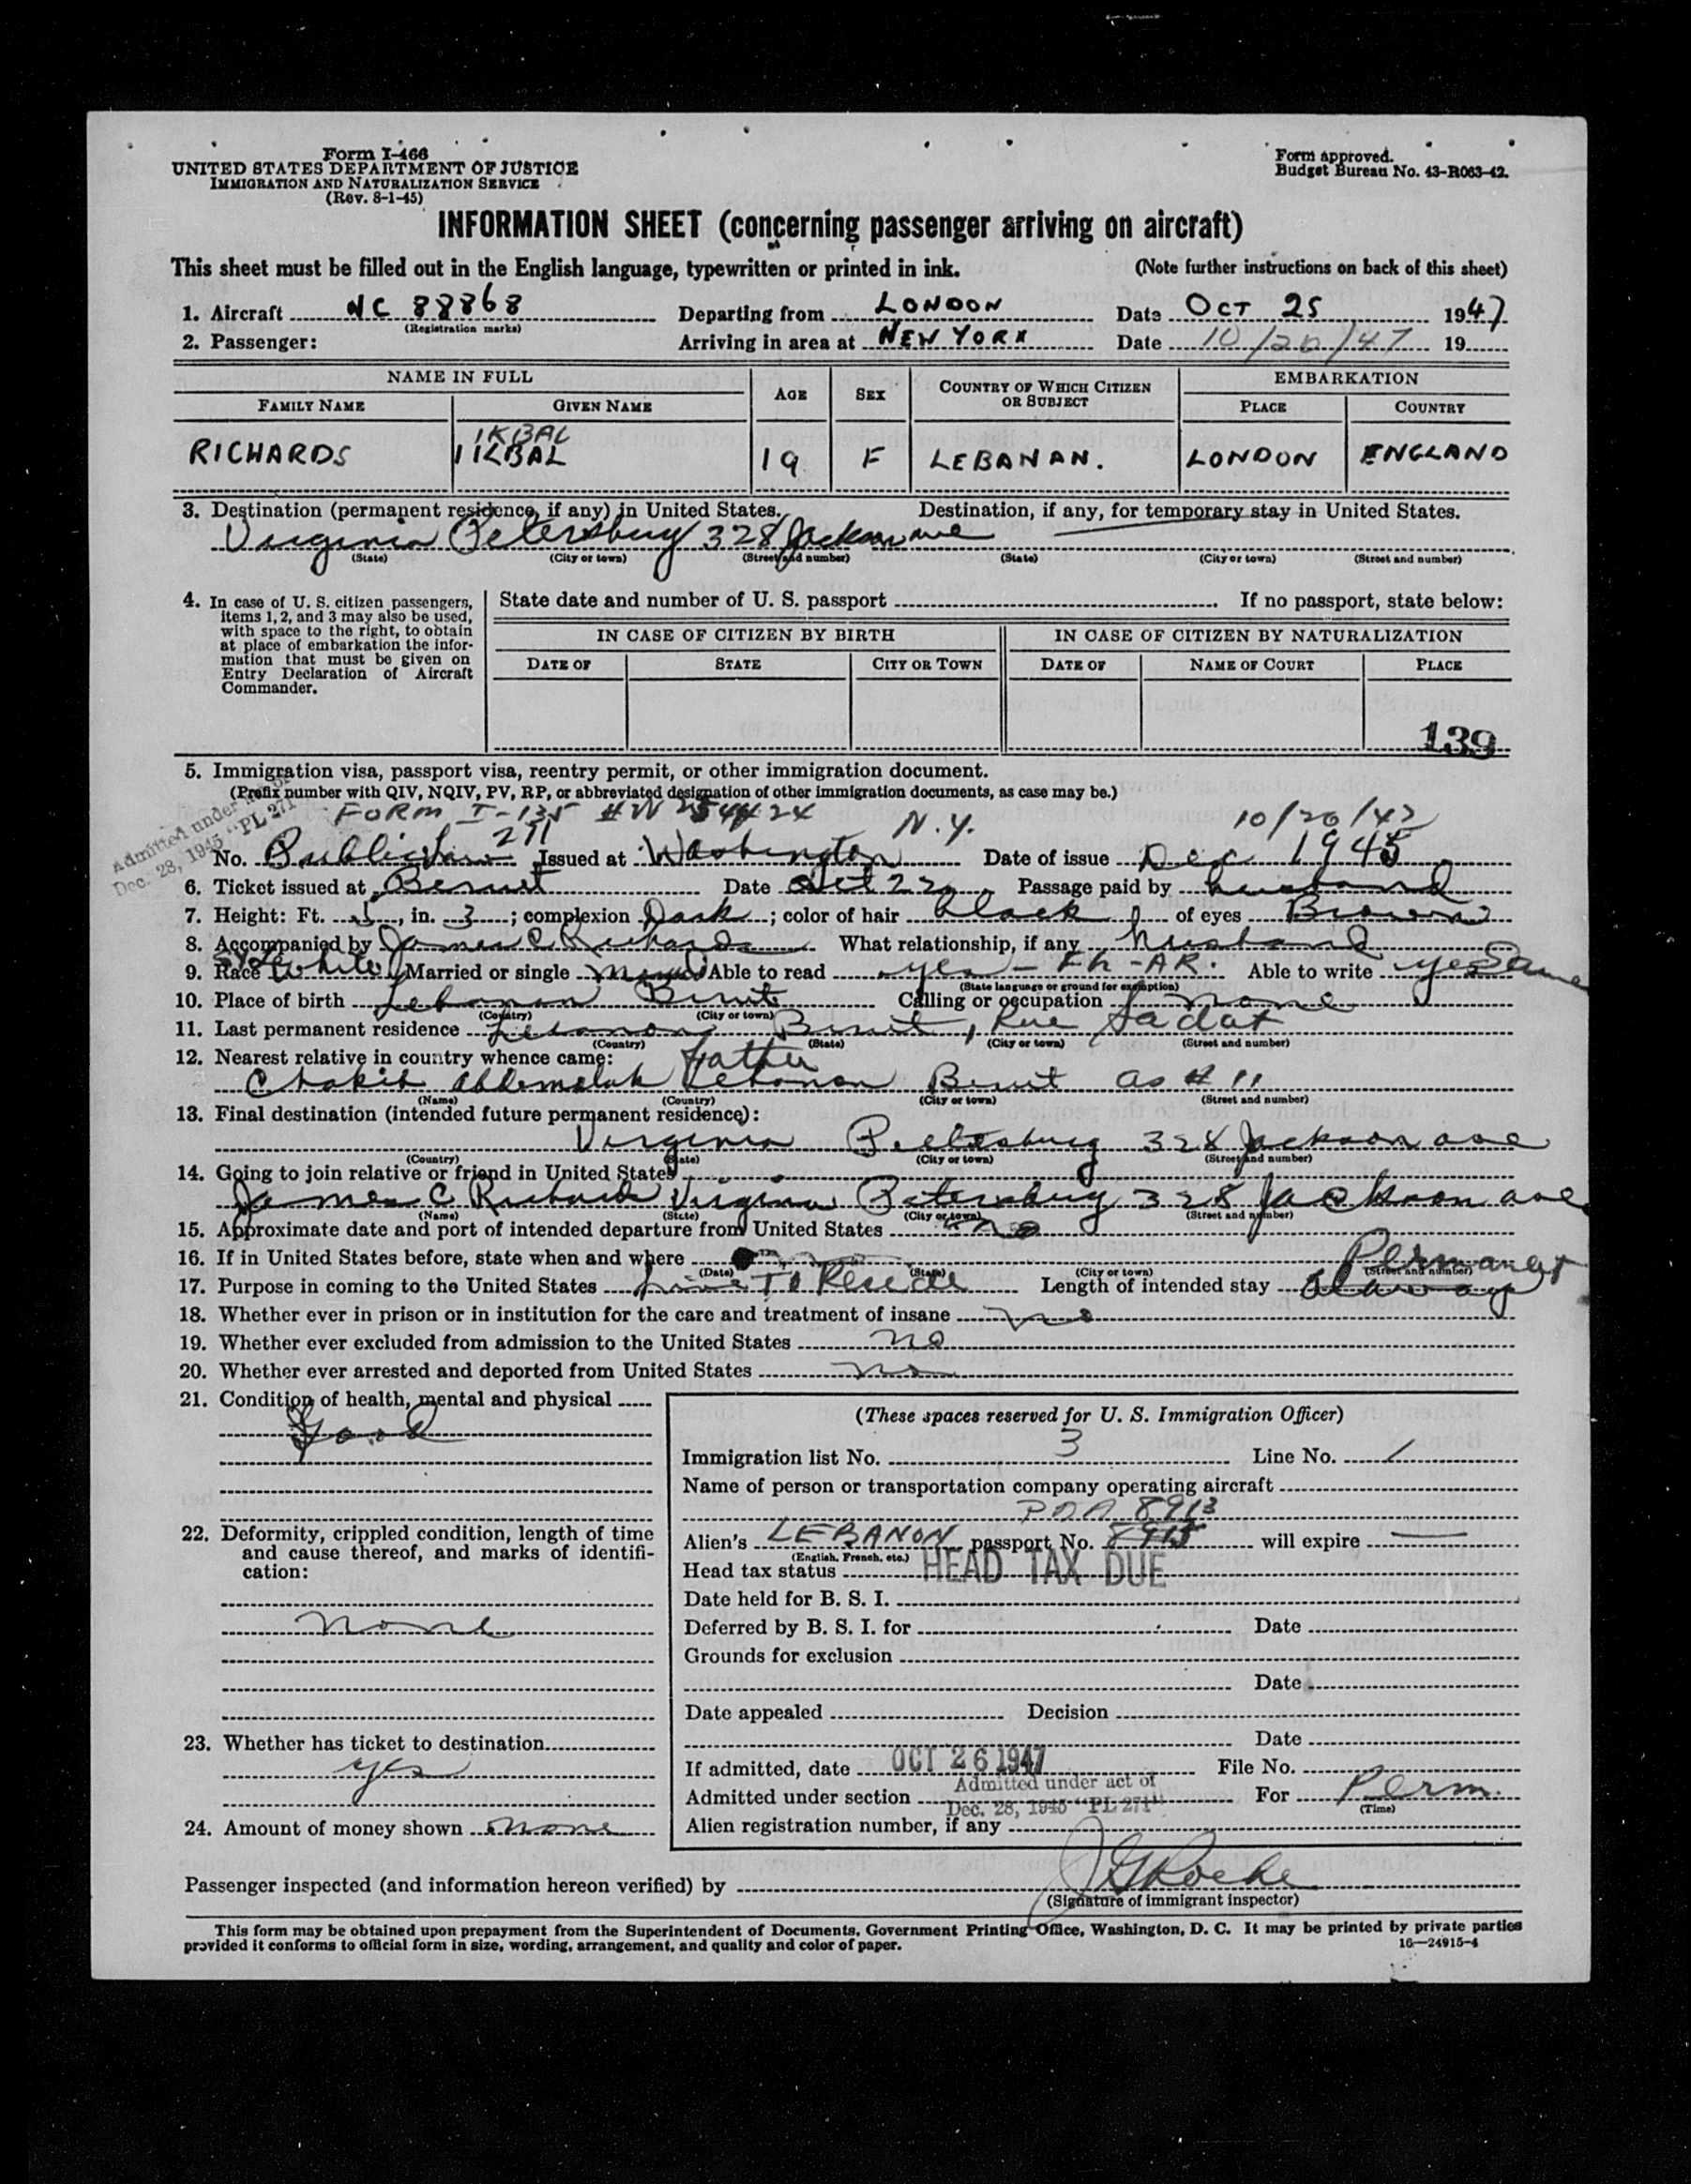 Form I-466
UNITED STATES DEPARTMENT OF JUSTICE
IMMIGRATION AND NATURALIZATION SERVICE
(Rev. 8-1-45)
Form approved.
Budget Bureau No. 43-R063-42.
INFORMATION SHEET (concerning passenger arriving on aircraft)
This sheet must be filled out in the English language, typewritten or printed in ink. (Note further instructions on back of this sheet)
1. Aircraft NC 88868 Departing from LONDON Date OCT 25 1947
(Registration marks)
2. Passenger: Arriving in area at NEW YORK Date 10/26/47 19
NAME IN FULL AGE SEX COUNTRY OF WHICH CITIZEN OR SUBJECT EMBARKATION
FAMILY NAME GIVEN NAME PLACE COUNTRY
IKBAL
RICHARDS 19 F LEBANAN. LONDON ENGLAND
3. Destination (permanent residence, if any) in United States. Destination, if any, for temporary stay in United States.
Virginia Petersburg 328 Jackson ave
(State) (City or town) (Street and number) (State) (City or town) (Street and number)
4. In case of U. S. citizen passengers,
items 1, 2, and 3 may also be used,
with space to the right, to obtain
at place of embarkation the infor-
mation that must be given on
Entry Declaration of Aircraft
Commander.
State date and number of U. S. passport If no passport, state below:
IN CASE OF CITIZEN BY BIRTH IN CASE OF CITIZEN BY NATURALIZATION
DATE OF STATE CITY OR TOWN DATE OF NAME OF COURT PLACE
139
5. Immigration visa, passport visa, reentry permit, or other immigration document.
(Prefix number with QIV, NQIV, PV, RP, or abbreviated designation of other immigration documents, as case may be.)
Admitted under act of
Dec. 28, 1945 "PL 271"
FORM I-135 N.Y.
271
No. Public Law Issued at Washington Date of issue Dec 1945
6. Ticket issued at Beirut Date Oct 22 Passage paid by husband
7. Height: Ft. 5, in. 3; complexion Dark; color of hair black of eyes Brown
8. Accompanied by James C Richards What relationship, if any husband
9. Race White Married or single Married Able to read yes - Able to write yes Same
(State language or ground for exemption)
10. Place of birth Lebanon Birut Calling or occupation none
(Country) (City or town)
11. Last permanent residence Lebanon Birut, Rue Sadat
(Country) (State) (City or town) (Street and number)
12. Nearest relative in country whence came: father
Chakib Abdemalak Lebanon Birut as # 11
(Name) (Country) (City or town) (Street and number)
13. Final destination (intended future permanent residence):
Virginia Petesburg 328 Jackson ave
(Country) (State) (City or town) (Street and number)
14. Going to join relative or friend in United States
James C Richards Virginia Petersburg 328 Jackson ave
(Name) (State) (City or town) (Street and number)
15. Approximate date and port of intended departure from United States no
16. If in United States before, state when and where
(Date) (State) (City or town) (Street and number)
Permanent
17. Purpose in coming to the United States To Reside Length of intended stay
18. Whether ever in prison or in institution for the care and treatment of insane no
19. Whether ever excluded from admission to the United States no
20. Whether ever arrested and deported from United States no
21. Condition of health, mental and physical
Good
22. Deformity, crippled condition, length of time
and cause thereof, and marks of identifi-
cation:
none
23. Whether has ticket to destination
yes
24. Amount of money shown none
(These spaces reserved for U. S. Immigration Officer)
Immigration list No. 3 Line No. 1
Name of person or transportation company operating aircraft
8913
Alien's LEBANON passport No. will expire
(English, French, etc.)
Head tax status HEAD TAX DUE
Date held for B. S. I.
Deferred by B. S. I. for Date
Grounds for exclusion
Date
Date appealed Decision
Date
If admitted, date OCT 26 1947 File No.
Admitted under act of
Admitted under section Dec. 28, 1945 "PL 271" For Perm.
(Time)
Alien registration number, if any
Passenger inspected (and information hereon verified) by
(Signature of immigrant inspector)
This form may be obtained upon prepayment from the Superintendent of Documents, Government Printing Office, Washington, D. C. It may be printed by private parties
provided it conforms to official form in size, wording, arrangement, and quality and color of paper. 16—24915-4